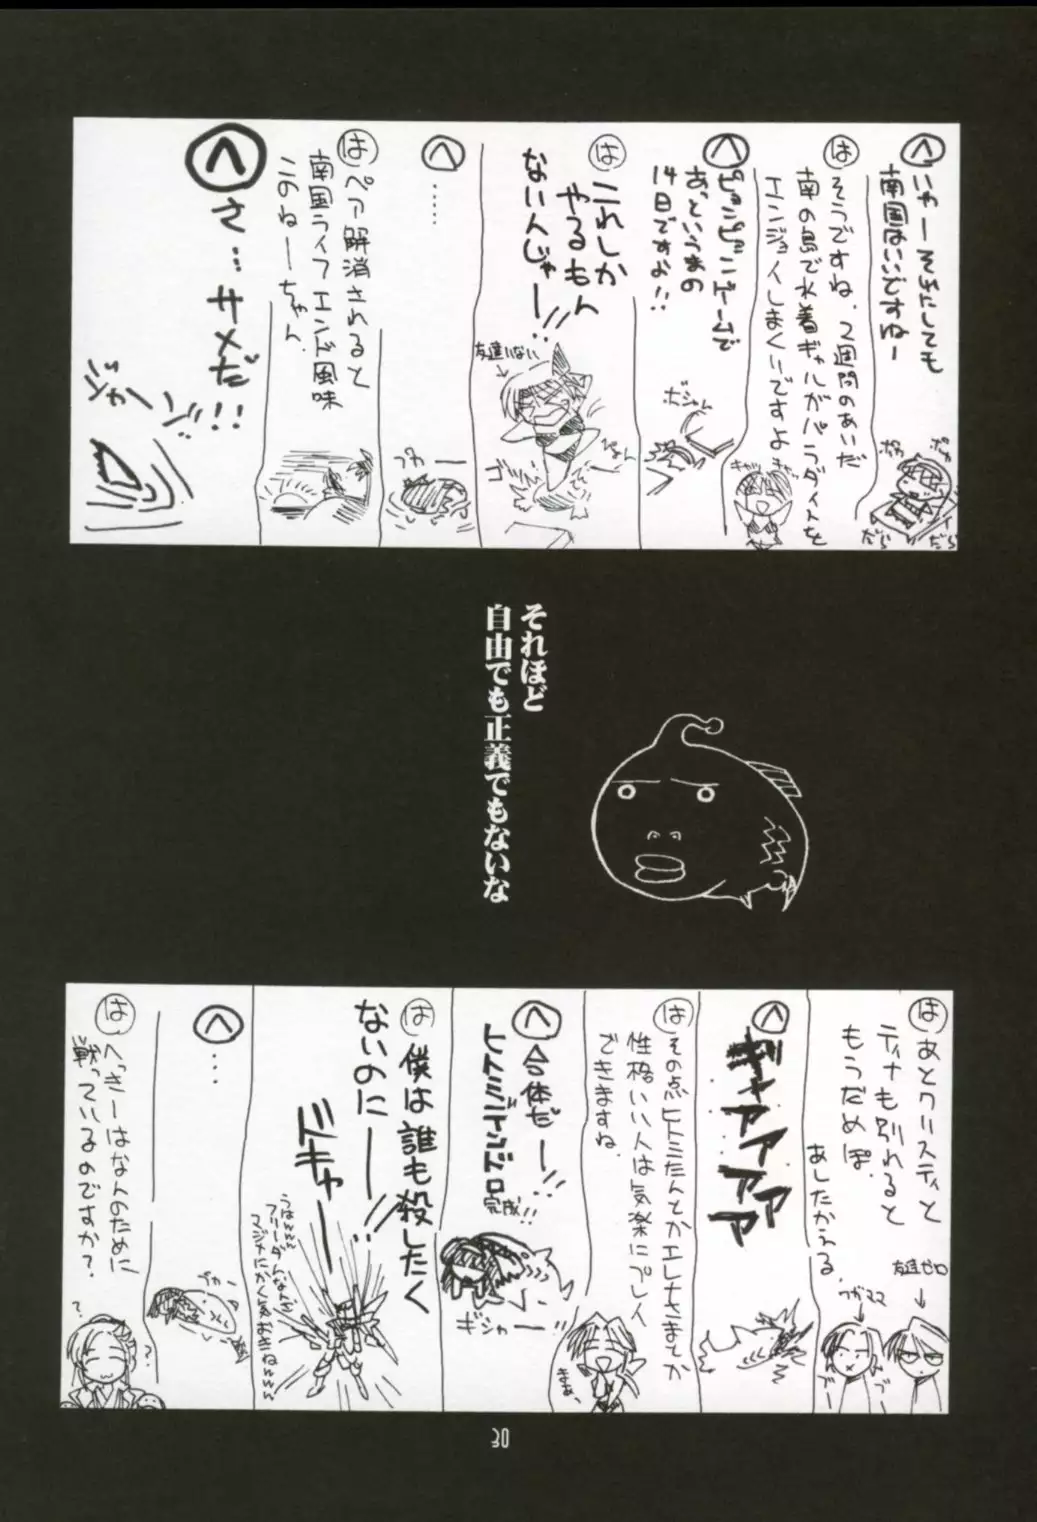 へ いやーそれにしても
南国はいいですねー
ボヤ
ボヤ
だら
だら
は そうですね、2週間のあいだ
南の島で水着ギャルがパラダイスを
エンジョイしまくいですよ
キャッ
キャッ
へ ピョンピョンゲームで
あっというまの
14日ですよ!!
ボシャン
は これしか
やるもん
ないんじゃー!!
友達いない
ぴょん
ゴッ
へ ……
プカー
は ペア解消されると
南国ライフエンド風味
このねーちゃん
へ さ…サメだ!!
ジャーン
それほど
自由でも正義でもないな
は あとクリスティと
ティナも別れると
もうだめぽ。
あしたかえる。
友達ゼロ
ブザママ
ブー
ブ
へ ギャアアアア
は その点ヒトミたんとかエレナさまとか
性格いい人は気楽にプレイ
できますね。
まぁ、
へ 合体だー!!
ヒトミデンドロ
完成!!
ギシャー!!
は 僕は誰も殺したく
ないのにーー!!
ドキャー
うはwww
フリーダムなんw
マジなにかく気おきねwww
へ …
プカー
は へっきーはなんのために
戦っているのですか?
?
?
30